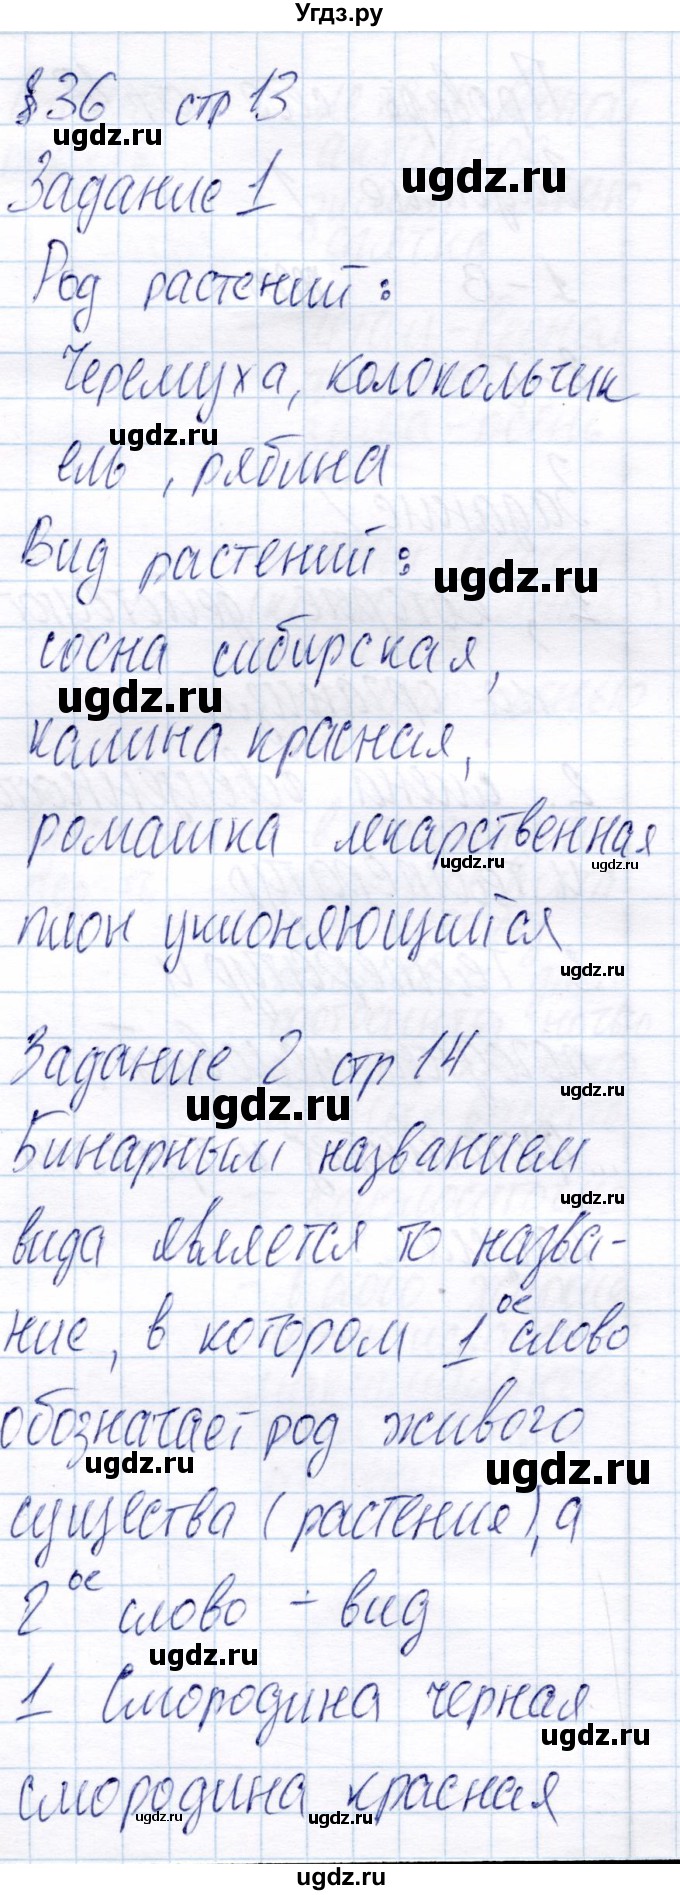 Угдз.ру
§36 стр 13
ugdz.ru
ugdz.ru
Задание 1
Род растений:
Черемуха, колокольчик
ugdz.ru
ель, рябина
Вид растений:
ugdz.ru
сосна сибирская,
ugdz.ru
калина красная,
ромашка лекарственная
ugdz.ru
ugdz.ru
пион уклоняющийся
ugdz.ru
Задание 2 стр 14
ugdz.ru
ugdz.ru
Бинарным названием
ugdz.ru
вида является то назва-
ние, в котором 1ое слово
обозначает род живого
ugdz.ru
ugdz.ru
существа (растения), а
2ое слово - вид
ugdz.ru
1 Смородина черная
ugdz.ru
смородина красная
ugdz.ru
ugdz.ru
ugdz.ru